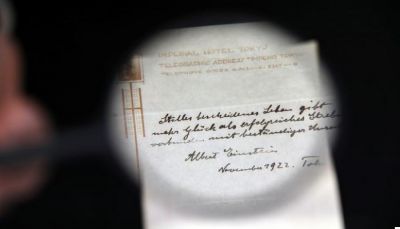 IMPERIAL HOTEL TOKYO
TELEGRAPHIC ADDRESS
Stilles bescheidenes Leben gibt
mehr Glück als erfolgreiches Streb
verbunden mit beständiger Unru
Albert Einstein
November 1922. Tok